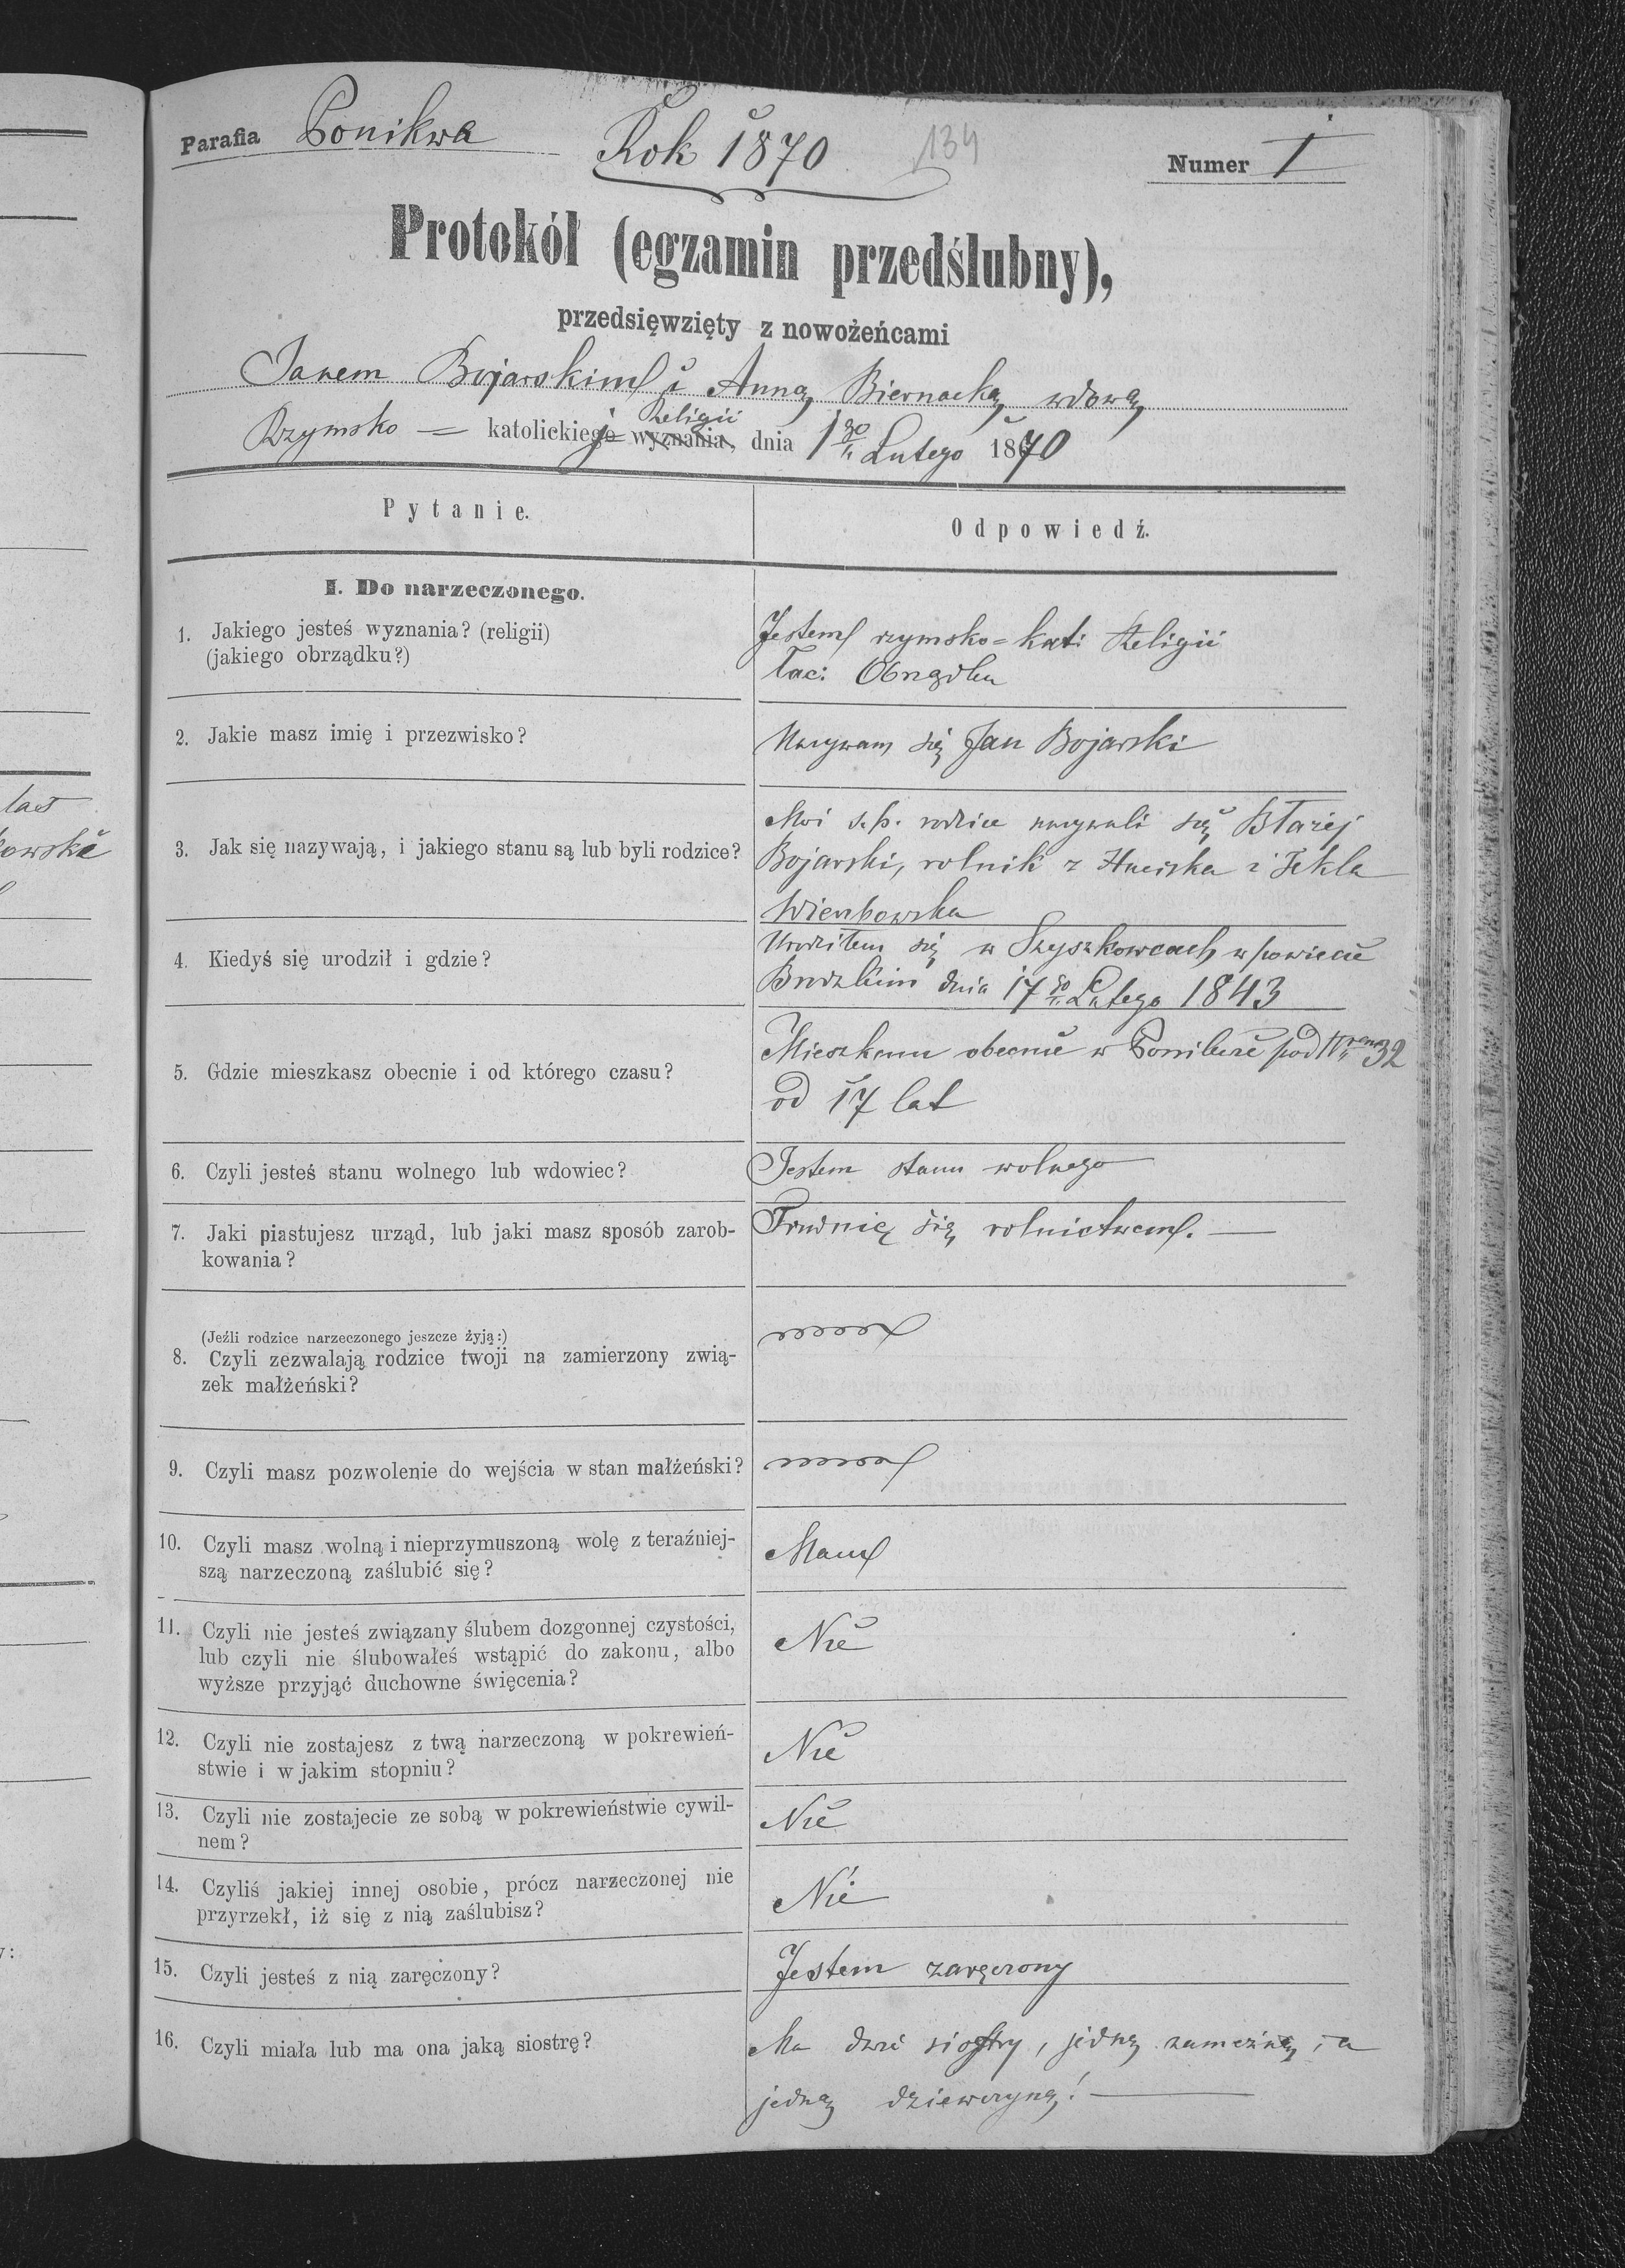 Parafia Ponikwa
Rok 1870
134
Numer I
Protokół (egzamin przedślubny),
przedsięwzięty z nowożeńcami
Janem Bojarskim i Anną Biernacką wdową
Religii
Rzymsko = katolickiej wyznania, dnia 1go Lutego 1870
Pytanie.
Odpowiedź.
I. Do narzeczonego.
1. Jakiego jesteś wyznania? (religii)
(jakiego obrządku?)
Jestem rzymsko=kat: Religii
łac: Obrządku
2. Jakie masz imię i przezwisko?
Nazywam się Jan Bojarski
3. Jak się nazywają, i jakiego stanu są lub byli rodzice?
Moi ś.p. rodzice nazywali się Błażej
Bojarski, rolnik z Huciska i Tekla
Wierzbowska
4. Kiedyś się urodził i gdzie?
Urodziłem się w Szyszkowcach w powiecie
Brodzkim dnia 17go Lutego 1843
5. Gdzie mieszkasz obecnie i od którego czasu?
Mieszkam obecnie w Ponikwie pod Nrem 32
od 17 lat
6. Czyli jesteś stanu wolnego lub wdowiec?
Jestem stanu wolnego
7. Jaki piastujesz urząd, lub jaki masz sposób zarob-
kowania?
Trudnię się rolnictwem.
(Jeźli rodzice narzeczonego jeszcze żyją:)
8. Czyli zezwalają rodzice twoji na zamierzony zwią-
zek małżeński?
9. Czyli masz pozwolenie do wejścia w stan małżeński?
10. Czyli masz wolną i nieprzymuszoną wolę z teraźniej-
szą narzeczoną zaślubić się?
Mam
11. Czyli nie jesteś związany ślubem dozgonnej czystości,
lub czyli nie ślubowałeś wstąpić do zakonu, albo
wyższe przyjąć duchowne święcenia?
Nie
12. Czyli nie zostajesz z twą narzeczoną w pokrewień-
stwie i w jakim stopniu?
Nie
13. Czyli nie zostajecie ze sobą w pokrewieństwie cywil-
nem?
Nie
14. Czyliś jakiej innej osobie, prócz narzeczonej nie
przyrzekł, iż się z nią zaślubisz?
Nie
15. Czyli jesteś z nią zaręczony?
Jestem zaręczony
16. Czyli miała lub ma ona jaką siostrę?
Ma dwie siostry, jedną zamężną, a
jedną dziewczyną!